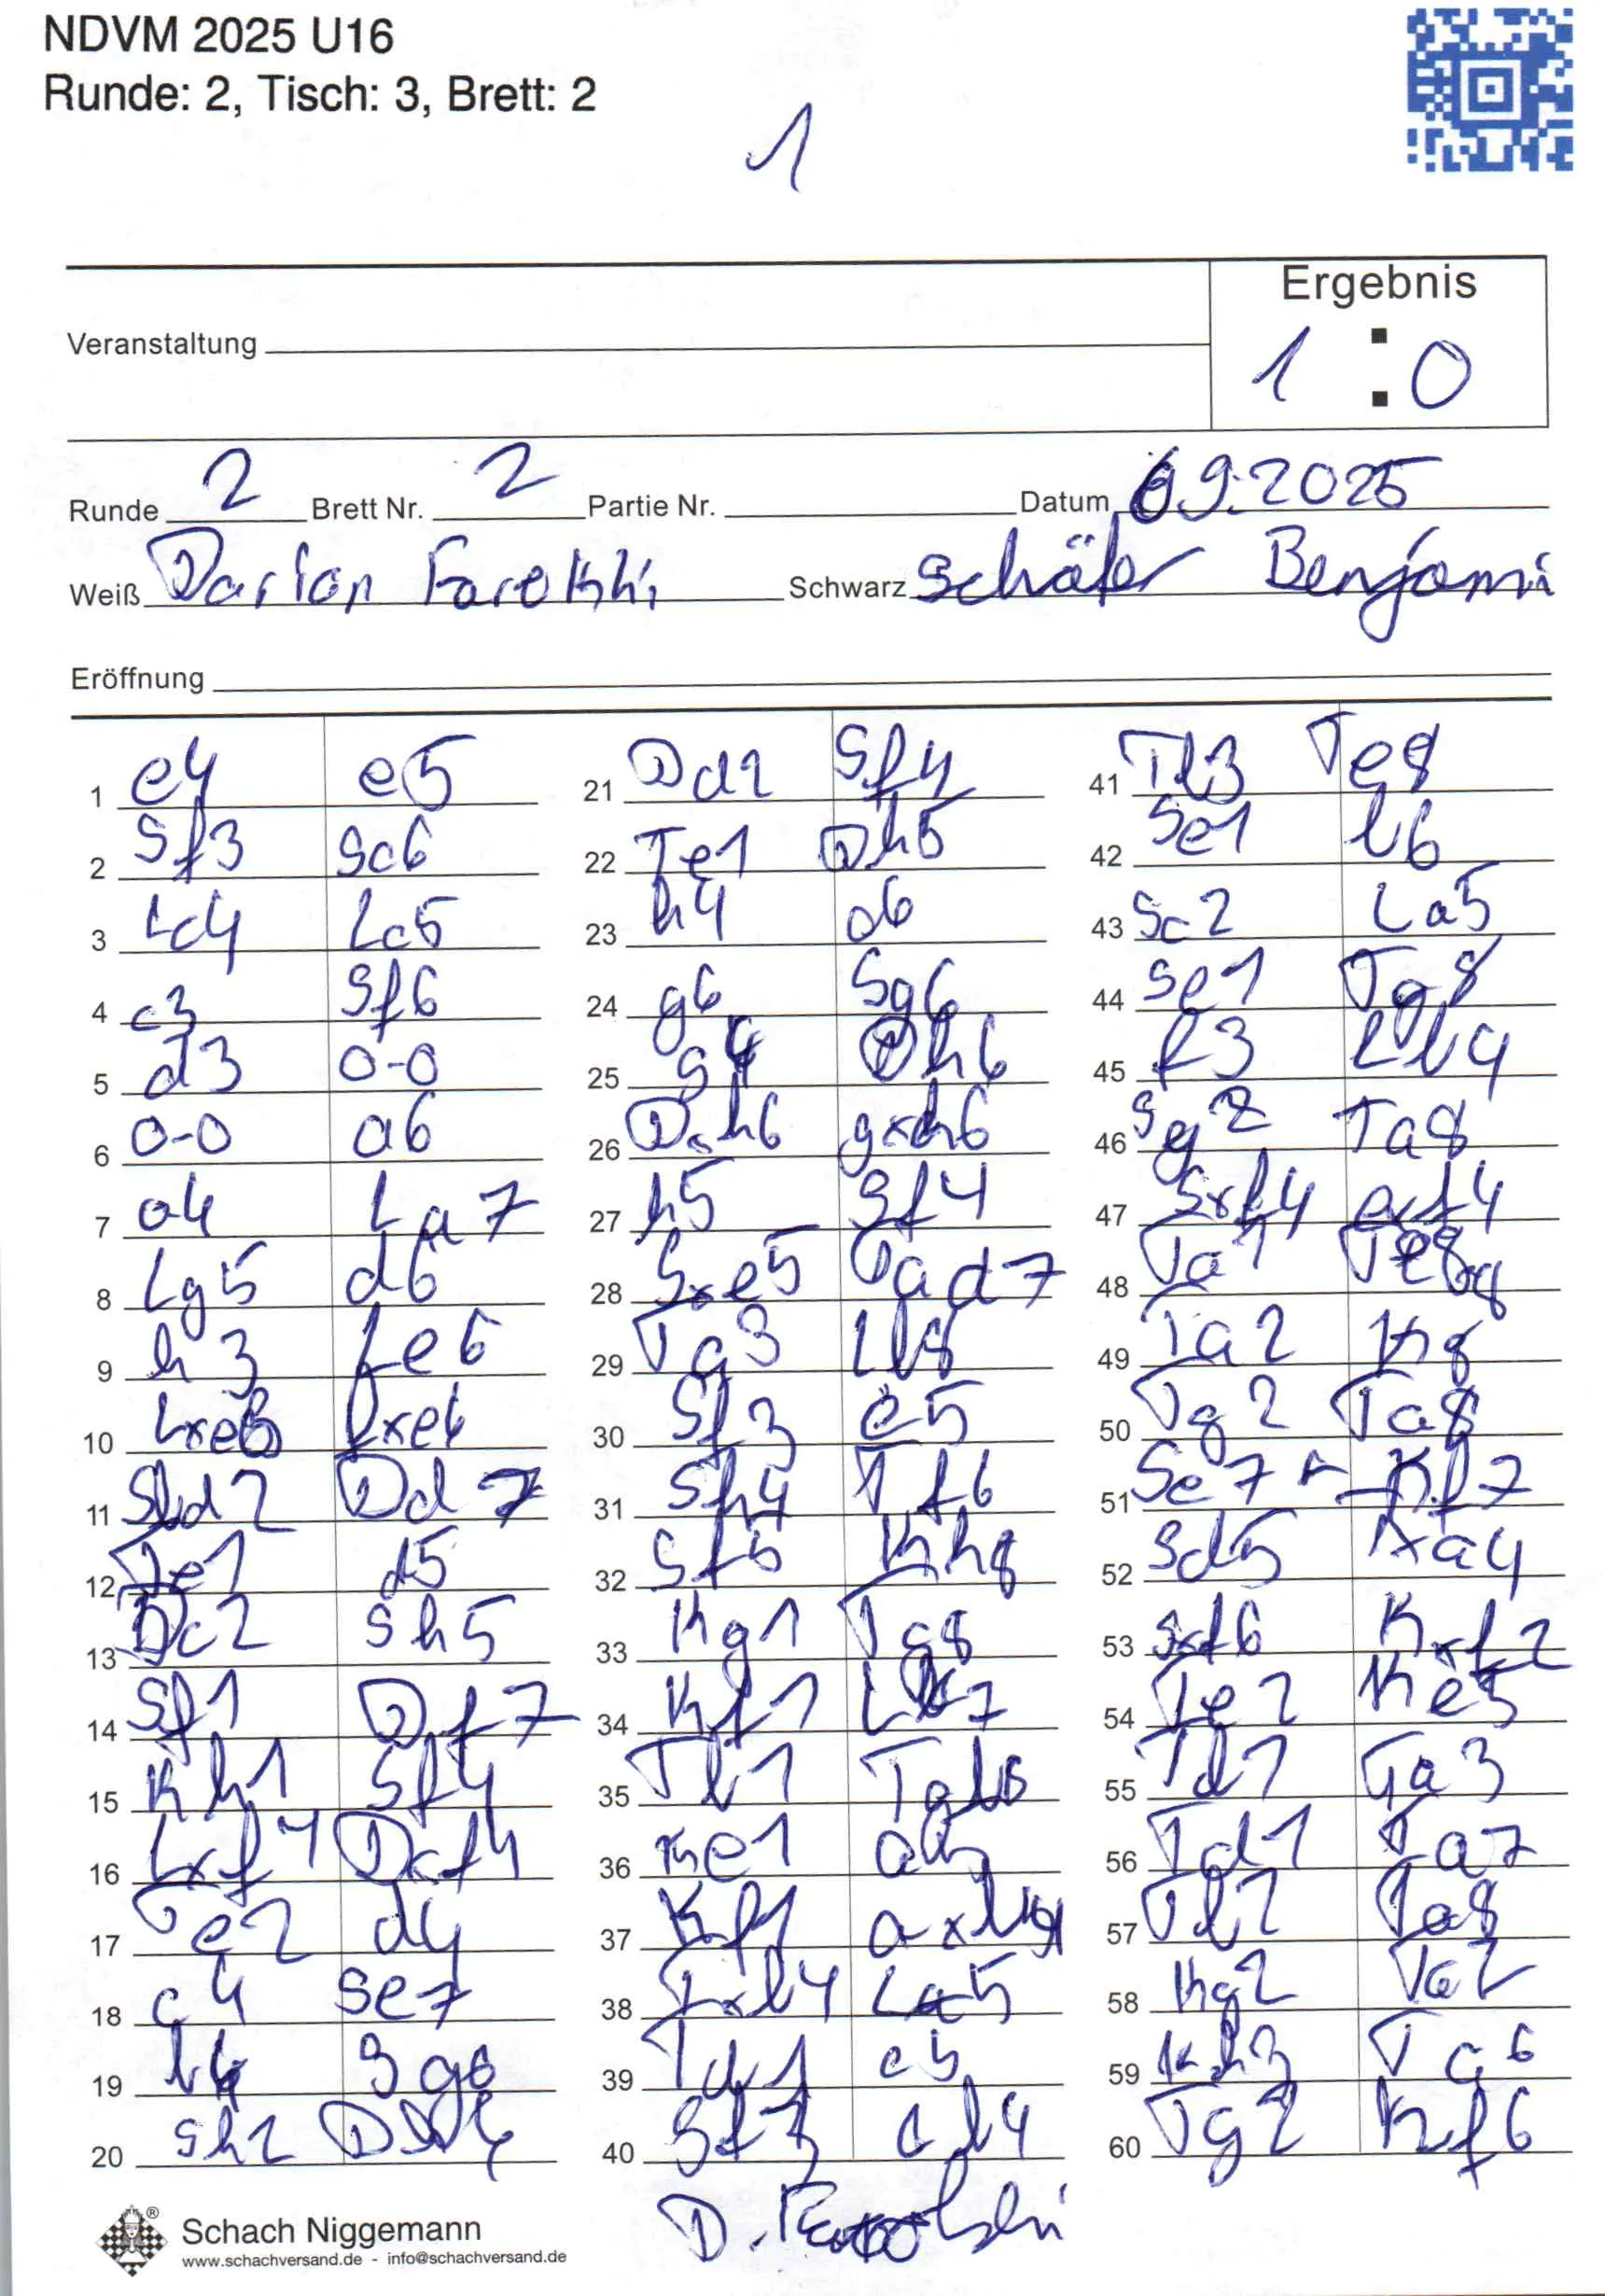 NDVM 2025 U16
Runde: 2, Tisch: 3, Brett: 2
1
Ergebnis
Veranstaltung
1 : 0
Runde 2 Brett Nr. 2 Partie Nr. Datum 6.9.2025
Weiß Darion Farokhi Schwarz Schäfer Benjamin
Eröffnung
1 e4 e5
2 Sf3 Sc6
3 Lc4 Lc5
4 c3 Sf6
5 d3 0-0
6 0-0 a6
7 a4 La7
8 Lg5 d6
9 h3 Le6
10 Lxe6 fxe6
11 Sbd2 Dd7
12 Te1 d5
13 Dc2 Sh5
14 Sf1 Df7
15 Kh1 Sf4
16 Lxf4 Dxf4
17 Te2 d4
18 c4 Se7
19 b4 Sg6
20 Sh2
21 Dd2 Sf4
22 Te1 Dh5
23 h4
24 Sg6
25 g4 Dh6
26 Dxh6 gxh6
27 h5 Sf4
28 Sxe5 Tad7
29 Tg3 Lb8
30 Sf3 e5
31 Sh4 Tf6
32 Sf5 Kh8
33 Kg1 Tg8
34 Kf1
35 Tb1
36 Ke1 a5
37 Kf1
38 Txb4 La5
39 c5
40 Sf3
41 Tb3 Te8
42 Se1 b6
43 Sc2 La5
44 Se1 Tg8
45 f3 Lb4
46 Sg2 Ta8
47 Sxf4 exf4
48 Ta1
49 Ta2
50 Tg2 Ta8
51 Se7 + Kf7
52 Sd5 Txa4
53 Sxf6
54 Te2 Ke5
55 Td1 Ta3
56 Td1 Ta7
57 Ta8
58 Kg2 Ta2
59 Kh3 Ta6
60 Tg2 Kf6
Schach Niggemann
www.schachversand.de - info@schachversand.de